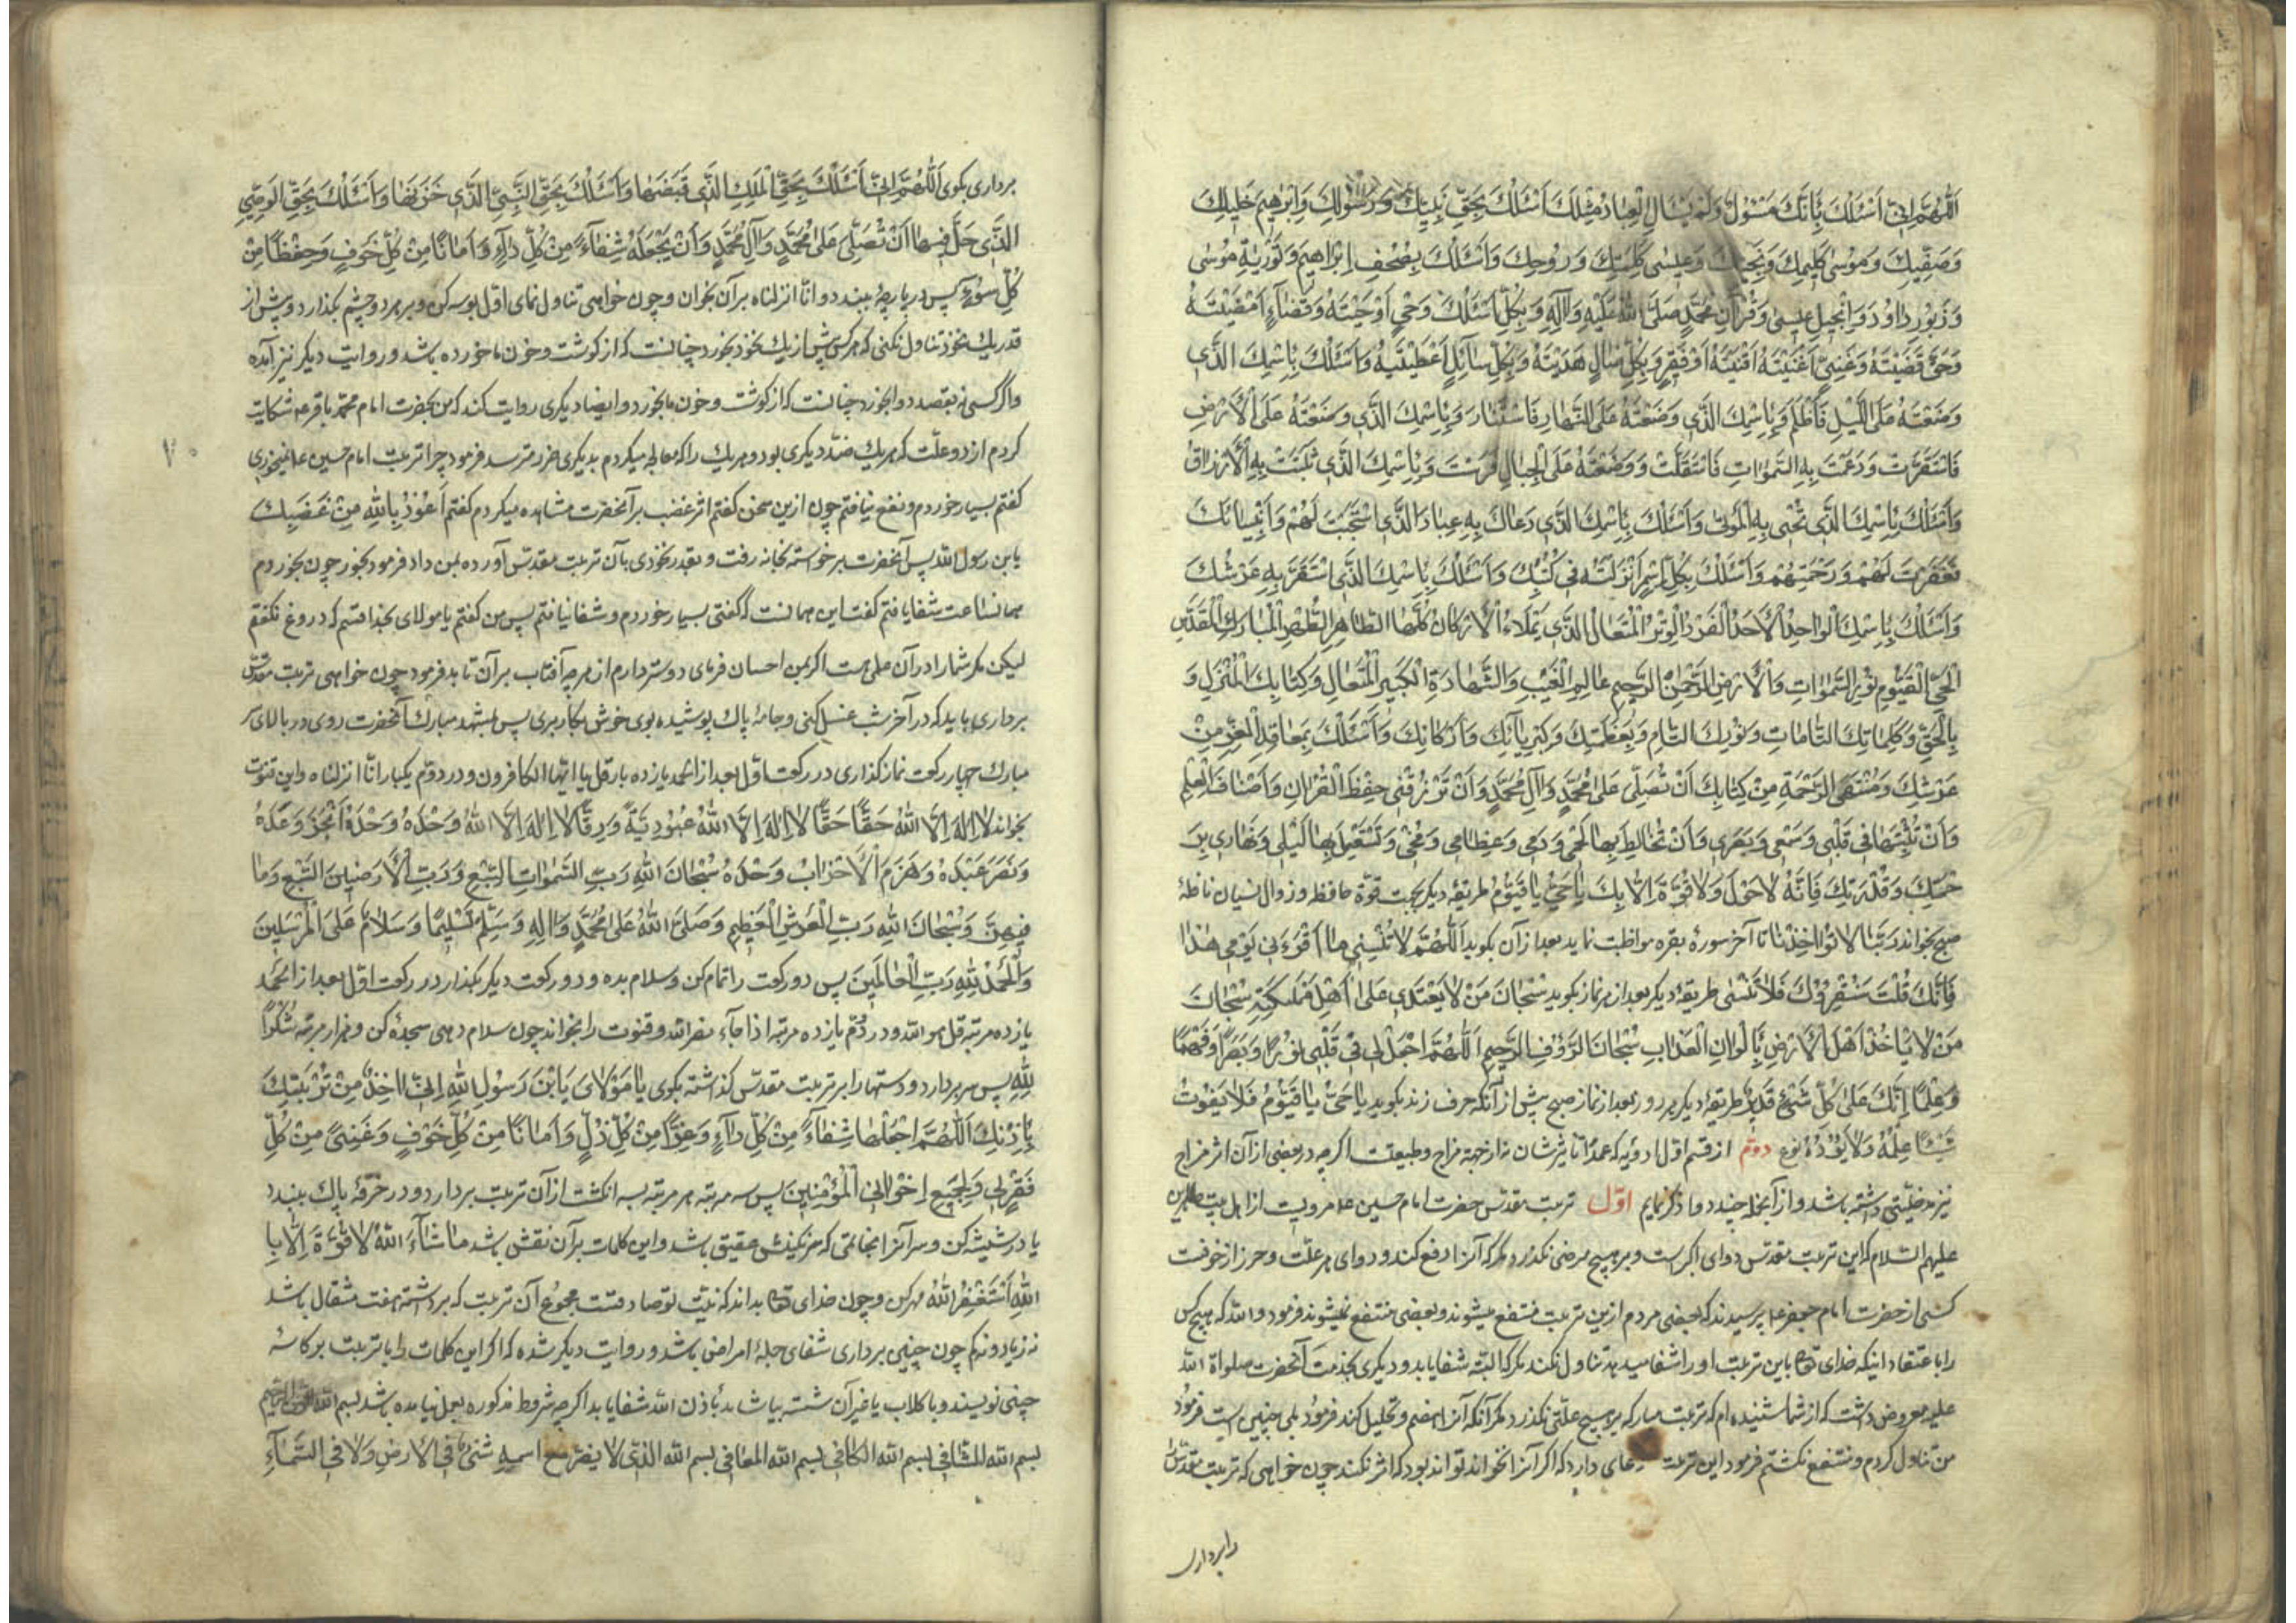 اَللّٰهُمَّ اِنّى اَسْئَلُكَ بِاَنَّكَ مَسْئُولٌ وَلَمْ يُسْأَلِ الْعِبادُ مِثْلَكَ اَسْئَلُكَ بِحَقِّ نَبِيِّكَ وَرَسُولِكَ وَاِبْرٰهِيمَ خَليلِكَ
وَصَفِيِّكَ وَمُوسٰى كَليمِكَ وَنَجِيِّكَ وَعيسٰى كَلِمَتِكَ وَرُوحِكَ وَاَسْئَلُكَ بِصُحُفِ اِبْرٰاهيمَ وَتَوْرٰيةِ مُوسٰى
وَزَبُورِ دٰاوُدَ وَاِنْجيلِ عيسٰى وَقُرْآنِ مُحَمَّدٍ صَلَّى اللّٰهُ عَلَيْهِ وَاٰلِهِ وَبِكُلِّ اَسْئَلُكَ وَحْيٍ اَوْحَيْتَهُ وَقَضٰاءٍ اَمْضَيْتَهُ
وَحَقٍّ قَضَيْتَهُ وَغَنِيٍّ اَغْنَيْتَهُ اَقْنَيْتَهُ اَوْ فَقيرٍ وَبِكُلِّ ضٰالٍّ هَدَيْتَهُ وَبِكُلِّ سٰائِلٍ اَعْطَيْتَهُ وَاَسْئَلُكَ بِاسْمِكَ الَّذى
وَضَعْتَهُ عَلَى اللَّيْلِ فَاَظْلَمَ وَبِاسْمِكَ الَّذى وَضَعْتَهُ عَلَى النَّهارِ فَاسْتَنٰارَ وَبِاسْمِكَ الَّذى وَضَعْتَهُ عَلَى الْاَرْضِ
فَاسْتَقَرَّتْ وَدَعَمْتَ بِهِ السَّمٰوٰاتِ فَاسْتَقَلَّتْ وَوَضَعْتَهُ عَلَى الْجِبٰالِ فَرَسَتْ وَبِاسْمِكَ الَّذى ثَبَتَتْ بِهِ الْاَرْزٰاقُ
وَاَسْئَلُكَ بِاسْمِكَ الَّذى تُحْيى بِهِ الْمَوْتٰى وَاَسْئَلُكَ بِاسْمِكَ الَّذى دَعٰاكَ بِهِ عِبٰادَ الَّذى اسْتَجَبْتَ لَهُمْ وَاَنْبِيٰائَكَ
فَغَفَرْتَ لَهُمْ وَرَحِمْتَهُمْ وَاَسْئَلُكَ بِكُلِّ اسْمٍ اَنْزَلْتَهُ فى كُتُبِكَ وَاَسْئَلُكَ بِاسْمِكَ الَّذى اسْتَقَرَّ بِهِ عَرْشُكَ
وَاَسْئَلُكَ بِاسْمِكَ الْوٰاحِدِ الْاَحَدِ الْفَرْدِ الْوِتْرِ الْمُتَعٰالِ الَّذى يَمْلَاءُ الْاَرْكٰانَ كُلَّهَا الطّٰاهِرِ الطُّهْرِ الْمُبٰارَكِ الْمُقَدَّسِ
الْحَىِّ الْقَيُّومِ نُورِ السَّمٰوٰاتِ وَالْاَرْضِ الرَّحْمٰنِ الرَّحيمِ عٰالِمِ الْغَيْبِ وَالشَّهٰادَةِ الْكَبيرِ الْمُتَعٰالِ وَكِتٰابِكَ الْمُنْزَلِ وَ
بِالْحَقِّ وَكَلِمٰاتِكَ التّٰامّٰاتِ وَنُورِكَ التّٰامِّ وَبِعَظَمَتِكَ وَكِبْرِيٰائِكَ وَاَرْكٰانِكَ وَاَسْئَلُكَ بِمَعٰاقِدِ الْعِزِّ مِنْ
عَرْشِكَ وَمُنْتَهَى الرَّحْمَةِ مِنْ كِتٰابِكَ اَنْ تُصَلِّىَ عَلٰى مُحَمَّدٍ وَاٰلِ مُحَمَّدٍ وَاَنْ تَرْزُقَنى حِفْظَ الْقُرْاٰنِ وَاَصْنٰافَ الْعِلْمِ
وَاَنْ تُثَبِّتَهٰا فى قَلْبى وَسَمْعى وَبَصَرى وَاَنْ تُخٰالِطَ بِهٰا لَحْمى وَدَمى وَعِظٰامى وَمُخّى وَتَسْتَعْمِلَ بِهٰا لَيْلى وَنَهٰارى بِرَ
حْمَتِكَ وَقُدْرَتِكَ فَاِنَّهُ لٰا حَوْلَ وَلٰا قُوَّةَ اِلّٰا بِكَ يٰا حَىُّ يٰا قَيُّومُ طریقهٔ دیکر بجهت قوّة حافظه و زوال نسیان نافلهٔ
صبح بخواند رَبَّنٰا لٰا تُؤٰاخِذْنٰا تا آخر سورهٔ بقره مواظبت نماید بعد از آن بکوید اَللّٰهُمَّ لٰا تُنْسِنى مٰا اَقْرَءُ فى يَوْمى هٰذٰا
فَاِنَّكَ قُلْتَ سَنُقْرِؤُكَ فَلٰا تَنْسٰى طریقهٔ دیکر بعد از هر نماز بکوید سُبْحٰانَ مَنْ لٰا يَعْتَدى عَلٰى اَهْلِ مَمْلَكَتِهِ سُبْحٰانَ
مَنْ لٰا يَاْخُذُ اَهْلَ الْاَرْضِ بِاَلْوٰانِ الْعَذٰابِ سُبْحٰانَ الرَّؤُفِ الرَّحيمِ اَللّٰهُمَّ اجْعَلْ لى فى قَلْبى نُورًا وَبَصَرًا وَفَهْمًا
وَعِلْمًا اِنَّكَ عَلٰى كُلِّ شَىْءٍ قَديرٌ طریقهٔ دیکر هر روز بعد از نماز صبح پیش از آنکه حرف زند بکوید يٰا حَىُّ يٰا قَيُّومُ فَلٰا يَفُوتُ
شَيْئًا عِلْمُهُ وَلٰا يَؤُدُهُ نوع دوّم از قسم اوّل ادویه که عمدهٔ تأثیرشان نه از جهة مزاج و طبیعتست اکرچه در بعضی از آن اثر مزاج
نیز مدخلیّتی داشته باشد و از آنجمله چند دوا ذکر نمایم اوّل تربت مقدّس حضرت امام حسین ع مرویست از اهل بیت طاهرین
علیهم السّلام که این تربت مقدّس دوای اکبر است و بر هیچ مرضی نکذرد مکر که آنرا رفع کند و دوای هر علّت و حرز از خوفست
کسی از حضرت امام جعفر ع پرسید ند که بعضی مردم ازین تربت منتفع میشوند و بعضی منتفع نمیشوند فرمود و الله که هیچ کس
را باعتقاد اینکه خدای تعالی باین تربت او را شفا میدهد تناول نکند مکر که البتّه شفا یابد و دیکری بخدمت آنحضرت صلواة الله
علیه معروض داشت که از شما شنیده ام که تربت مبارکه بر هیچ علّتی نکذرد مکر آنکه آنرا هضم و تحلیل کند فرمود بلی چنین است فرمود
من تناول کردم و منتفع نکشتم فرمود این تربت دعای دارد که اکر آنرا نخواند تواند بود که اثر نکند چون خواهی که تربت مقدّس
را برداری
برداری بکوی اَللّٰهُمَّ اِنّى اَسْئَلُكَ بِحَقِّ الْمَلَكِ الَّذى قَبَضَهٰا وَاَسْئَلُكَ بِحَقِّ النَّبِىِّ الَّذى خَزَنَهٰا وَاَسْئَلُكَ بِحَقِّ الْوَصِىِّ
الَّذى حَلَّ فيهٰا اَنْ تُصَلِّىَ عَلٰى مُحَمَّدٍ وَاٰلِ مُحَمَّدٍ وَاَنْ تَجْعَلَهُ شِفٰاءً مِنْ كُلِّ دٰاءٍ وَاَمٰانًا مِنْ كُلِّ خَوْفٍ وَحِفْظًا مِنْ
كُلِّ سُوءٍ پس در پارچهٔ ببند د و انّا انزلناه بر آن بخوان و چون خواهی تناول نمای اوّل بوسه کن و بر هر دو چشم بکذار د و بیش از
قدر یك نخود تناول نکنی که هر کس بیش از یك نخود بخورد چنانست که از کوشت و خون ما خورده باشد و روایت دیکر نیز آمده
و اکر کسی نه بقصد دوا بخورد چنانست که از کوشت و خون ما بخورد و ایضا دیکری روایت کند که من بحضرت امام محمّد باقر ع شکایت
کردم از دو علّت که هر یك ضدّ دیکری بود و هر یك را که معالجه میکردم بدیکری ضرر میرسد فرمود چرا تربت امام حسین ع نمیخوری
کفتم بسیار خوردم و نفع نیافتم چون ازین سخن کفتم اثر غضب بر آنحضرت مشاهده میکردم کفتم اَعُوذُ بِاللّٰهِ مِنْ غَضَبِكَ
یا بن رسول الله پس آنحضرت برخواسته بخانه رفت و بقدر نخودی بآن تربت مقدّس آورده بمن داد فرمود بخور چون بخوردم
همانساعت شفا یافتم کفت این همانست که کفتی بسیار خوردم و شفا نیافتم پس من کفتم یا مولای بخدا قسم که دروغ نکفتم
لیکن مکر شما را در آن علمی هست اکر بمن احسان فرمای دوستر دارم از هر چه آفتاب بر آن تابد فرمود چون خواهی تربت مقدّس
برداری باید که در آخر شب غسل کنی و جامهٔ پاك پوشیده بوی خوش بکار بری پس بمشهد مبارك آنحضرت روی در بالای سر
مبارك چهار رکعت نماز کذاری در رکعت اوّل بعد از الحمد یازده بار قل یا ایّها الکافرون و در دوّم یکبار انّا انزلناه و این قنوت
بخواند لٰا اِلٰهَ اِلَّا اللّٰهُ حَقًّا حَقًّا لٰا اِلٰهَ اِلَّا اللّٰهُ عُبُودِيَّةً وَرِقًّا لٰا اِلٰهَ اِلَّا اللّٰهُ وَحْدَهُ وَحْدَهُ اَنْجَزَ وَعْدَهُ
وَنَصَرَ عَبْدَهُ وَهَزَمَ الْاَحْزٰابَ وَحْدَهُ سُبْحٰانَ اللّٰهِ رَبِّ السَّمٰوٰاتِ السَّبْعِ وَرَبِّ الْاَرَضينَ السَّبْعِ وَمٰا
فيهِنَّ وَسُبْحٰانَ اللّٰهِ رَبِّ الْعَرْشِ الْعَظيمِ وَصَلَّى اللّٰهُ عَلٰى مُحَمَّدٍ وَاٰلِهِ وَسَلِّمْ تَسْليمًا وَسَلٰامٌ عَلَى الْمُرْسَلينَ
وَالْحَمْدُ لِلّٰهِ رَبِّ الْعٰالَمينَ پس دو رکعت را تمام کن و سلام بده و دو رکعت دیکر بکذار در رکعت اوّل بعد از الحمد
یازده مرتبه قل هو الله و در دوّم یازده مرتبه اذا جاء نصر الله و قنوت را بخواند چون سلام دهی سجدهٔ کن و هزار مرتبه شُكْرًا
لِلّٰهِ پس سر بردارد و دستها را بر تربت مقدّس کذاشته بکوی يٰا مَوْلٰاىَ يَابْنَ رَسُولِ اللّٰهِ اِنّى اٰخِذٌ مِنْ تُرْبَتِكَ
بِاِذْنِكَ اَللّٰهُمَّ اجْعَلْهٰا شِفٰاءً مِنْ كُلِّ دٰاءٍ وَعِزًّا مِنْ كُلِّ ذُلٍّ وَاَمٰانًا مِنْ كُلِّ خَوْفٍ وَغِنىً مِنْ كُلِّ
فَقْرٍ لى وَلِجَميعِ اِخْوٰانِى الْمُؤْمِنينَ پس سه مرتبه هر مرتبه بسه انکشت از آن تربت بردارد و در خرقهٔ پاك ببندد
یا در شیشه کن و سر آنرا بخاتمی که نکینش عقیق باشد و این کلمات بر آن نقش باشد مٰا شٰاءَ اللّٰهُ لٰا قُوَّةَ اِلّٰا بِا
للّٰهِ اَسْتَغْفِرُ اللّٰهَ مهر کن و چون خدای تعالی بداند که نیّت تو صادقست مجموع آن تربت که برداشته هفت مثقال باشد
نه زیاد و نه کم چون چنین برداری شفای جملهٔ امراض باشد و روایت دیکر شده که اکر این کلمات را با تربت بر کاسهٔ
چینی نویسند و با کلاب یا غیر آن شسته بیاشامد باذن الله شفا یابد اکرچه شروط مذکوره بعمل نیامده باشد بسم الله الرحمن الرحیم
بسم الله الشافی بسم الله الکافی بسم الله المعافی بسم الله الذی لا یضرّ مع اسمه شیء فی الارض ولا فی السَّمٰاءِ